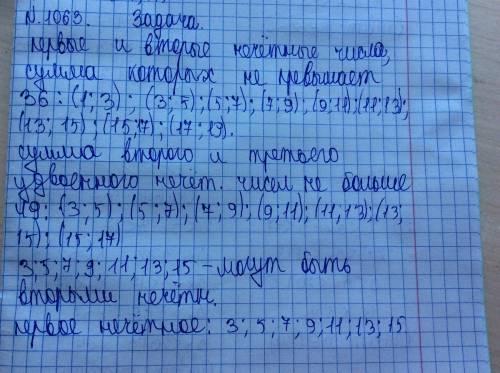 N.1063. Задача.
первые и вторые нечётные числа,
сумма которых не превышает
36: (1; 3); (3; 5); (5; 7); (7; 9); (9; 11); (11; 13);
(13; 15); (15; 17); (17; 19).
сумма второго и третьего
удвоенного нечёт. чисел не больше
49: (3; 5); (5; 7); (7; 9); (9; 11); (11, 13); (13;
15); (15; 17)
3; 5; 7; 9; 11; 13; 15 - могут быть
вторыми нечётн.
первое нечётное: 3; 5; 7; 9; 11; 13; 15